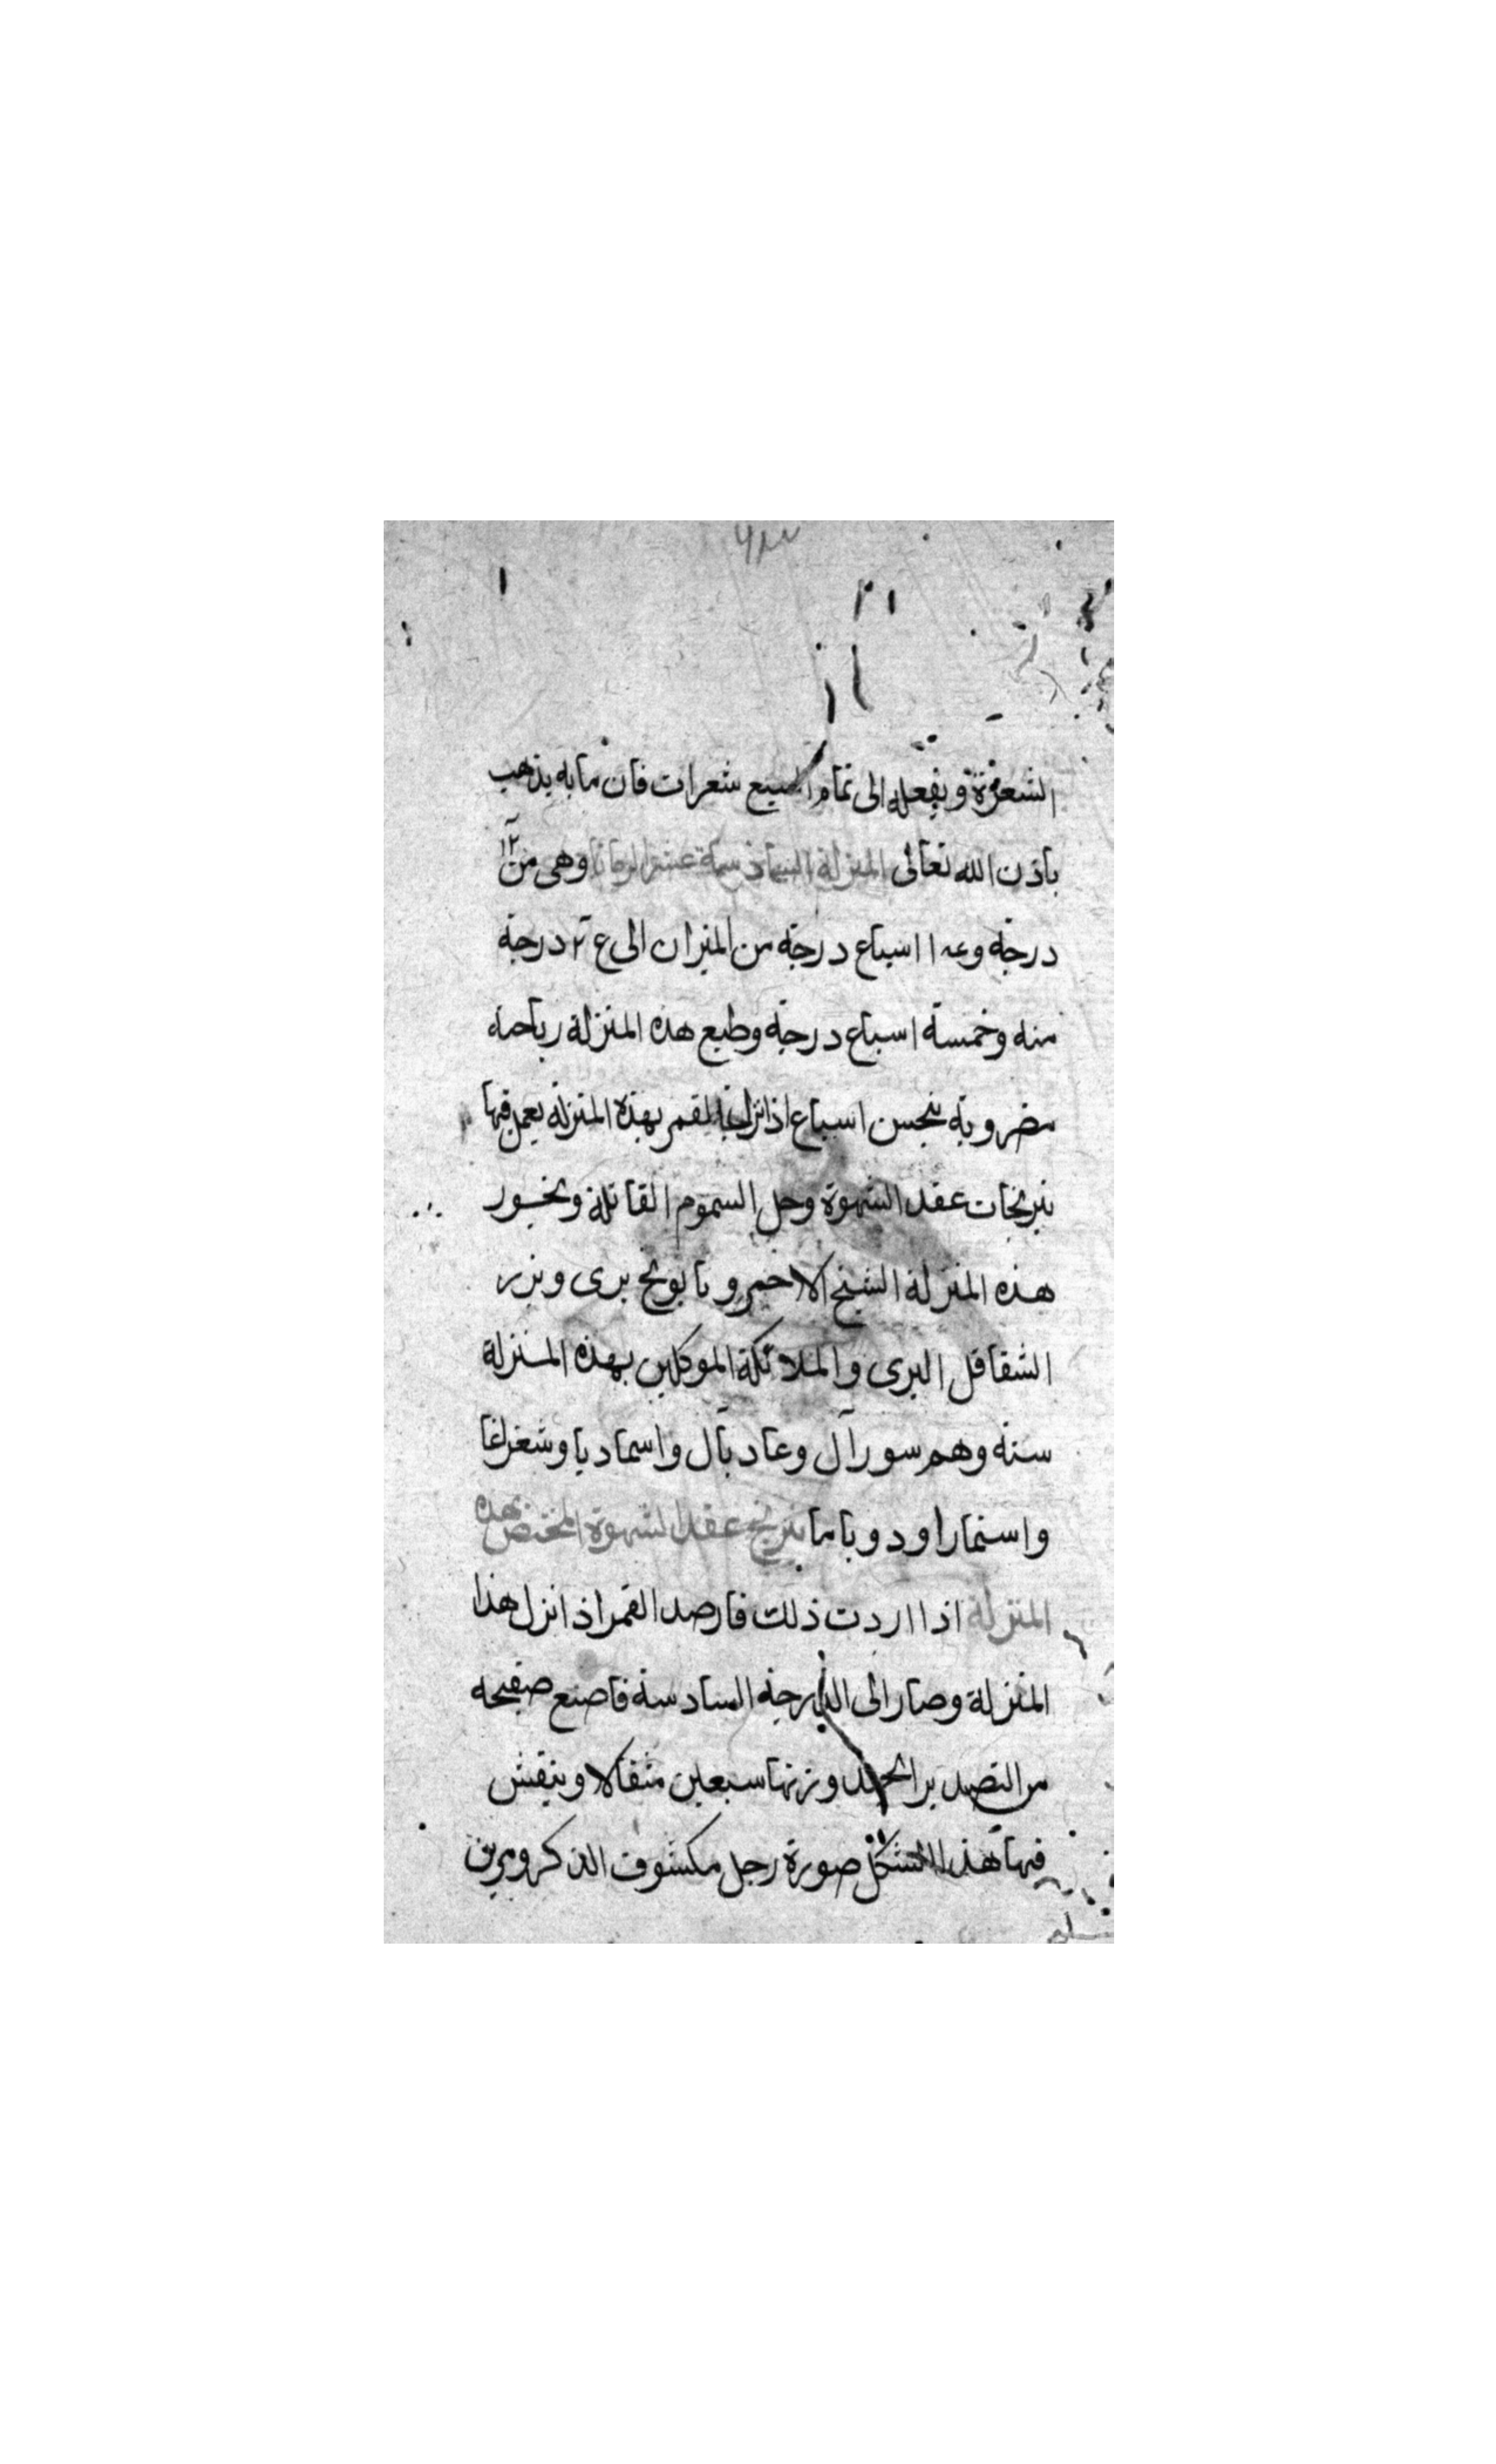 الشعرة ويفعله الى تمام السبع شعرات فان ما به يذهب
باذن الله تعالى المنزلة السادسة عشر الزبانا وهى من ١٢
درجة و اسباع درجة من الميزان الى ع ٢ درجة
منه وخمسة اسباع درجة وطبع هذه المنزلة رياحية
اسباع اذا نزل القمر بهذه المنزلة يعمل فيها
نيرنجات عقد الشهوة وحل السموم القاتلة وبخور
هذه المنزلة الشيح الاخضر و بابونج برى وبزر
الشقاقل البرى والملائكة الموكلين بهذه المنزلة
ستة وهم سورآل وعاديآل واسماديا وشغراغا
واستمارا ودوياما نيرنج عقد الشهوة المختص بهذه
المنزلة اذا اردت ذلك فارصد القمر اذا نزل هذا
المنزلة وصار الى الدرجة السادسة فاصنع صفيحه
من وزنها سبعين مثقالا وينقش
فيها هذا الشكل صورة رجل مكشوف الذكر وبين